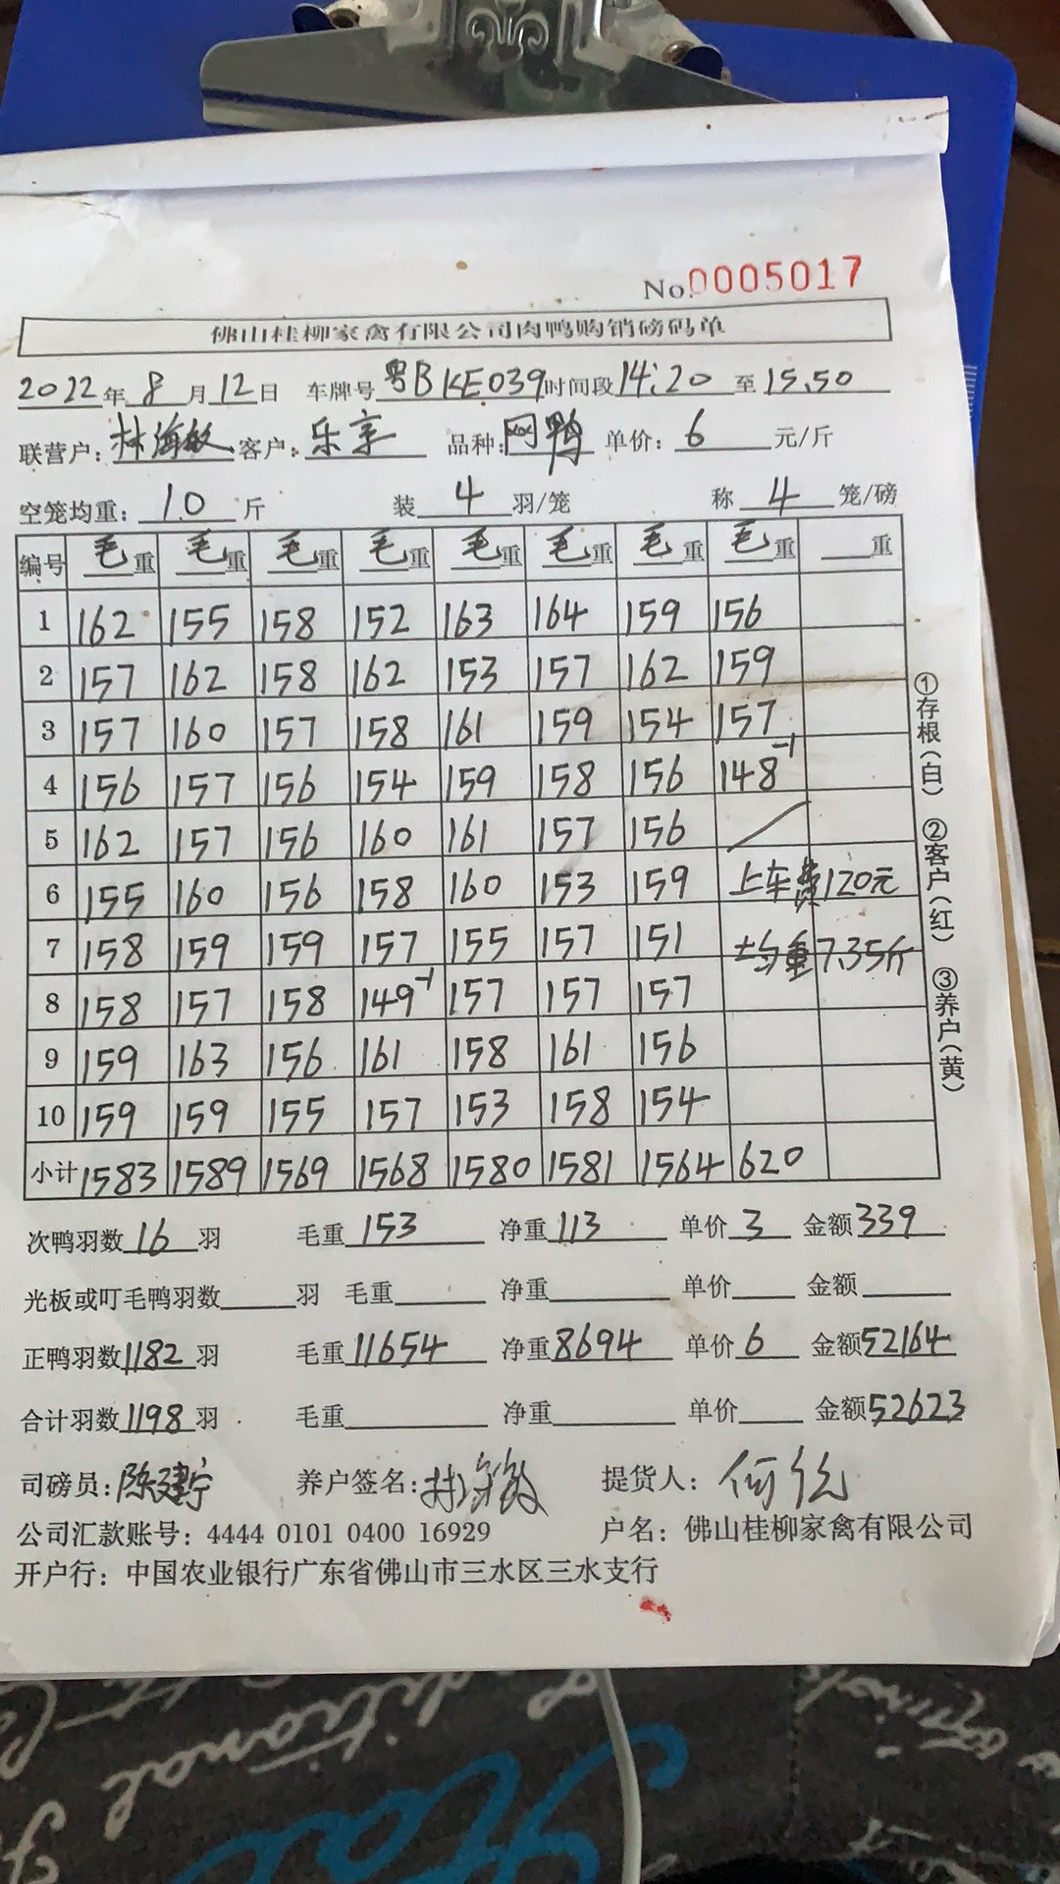 No.0005017
佛山桂柳家禽有限公司肉鸭购销磅码单
2022年8月12日 车牌号粤BKE039时间段14:20至15.50
联营户:林海敏 客户:乐享 品种: 单价:6元/斤
空笼均重:10斤 装4羽/笼 称4笼/磅
编号 毛重 毛重 毛重 毛重 毛重 毛重 毛重 毛重 重
1 162 155 158 152 163 164 159 156
2 157 162 158 162 153 157 162 159
3 157 160 157 158 161 159 154 157
4 156 157 156 154 159 158 156 148-1
5 162 157 156 160 161 157 156
6 155 160 156 158 160 153 159 上车费120元
7 158 159 159 157 155 157 151 均重7.35斤
8 158 157 158 149-1 157 157 157
9 159 163 156 161 158 161 156
10 159 159 155 157 153 158 154
小计 1583 1589 1569 1568 1580 1581 1564 620
①存根(白) ②客户(红) ③养户(黄)
次鸭羽数16羽 毛重153 净重113 单价3 金额339
光板或叮毛鸭羽数 羽 毛重 净重 单价 金额
正鸭羽数1182羽 毛重11654 净重8694 单价6 金额52164
合计羽数1198羽 毛重 净重 单价 金额52623
司磅员:陈建宁 养户签名: 提货人:
公司汇款账号:4444 0101 0400 16929 户名:佛山桂柳家禽有限公司
开户行:中国农业银行广东省佛山市三水区三水支行